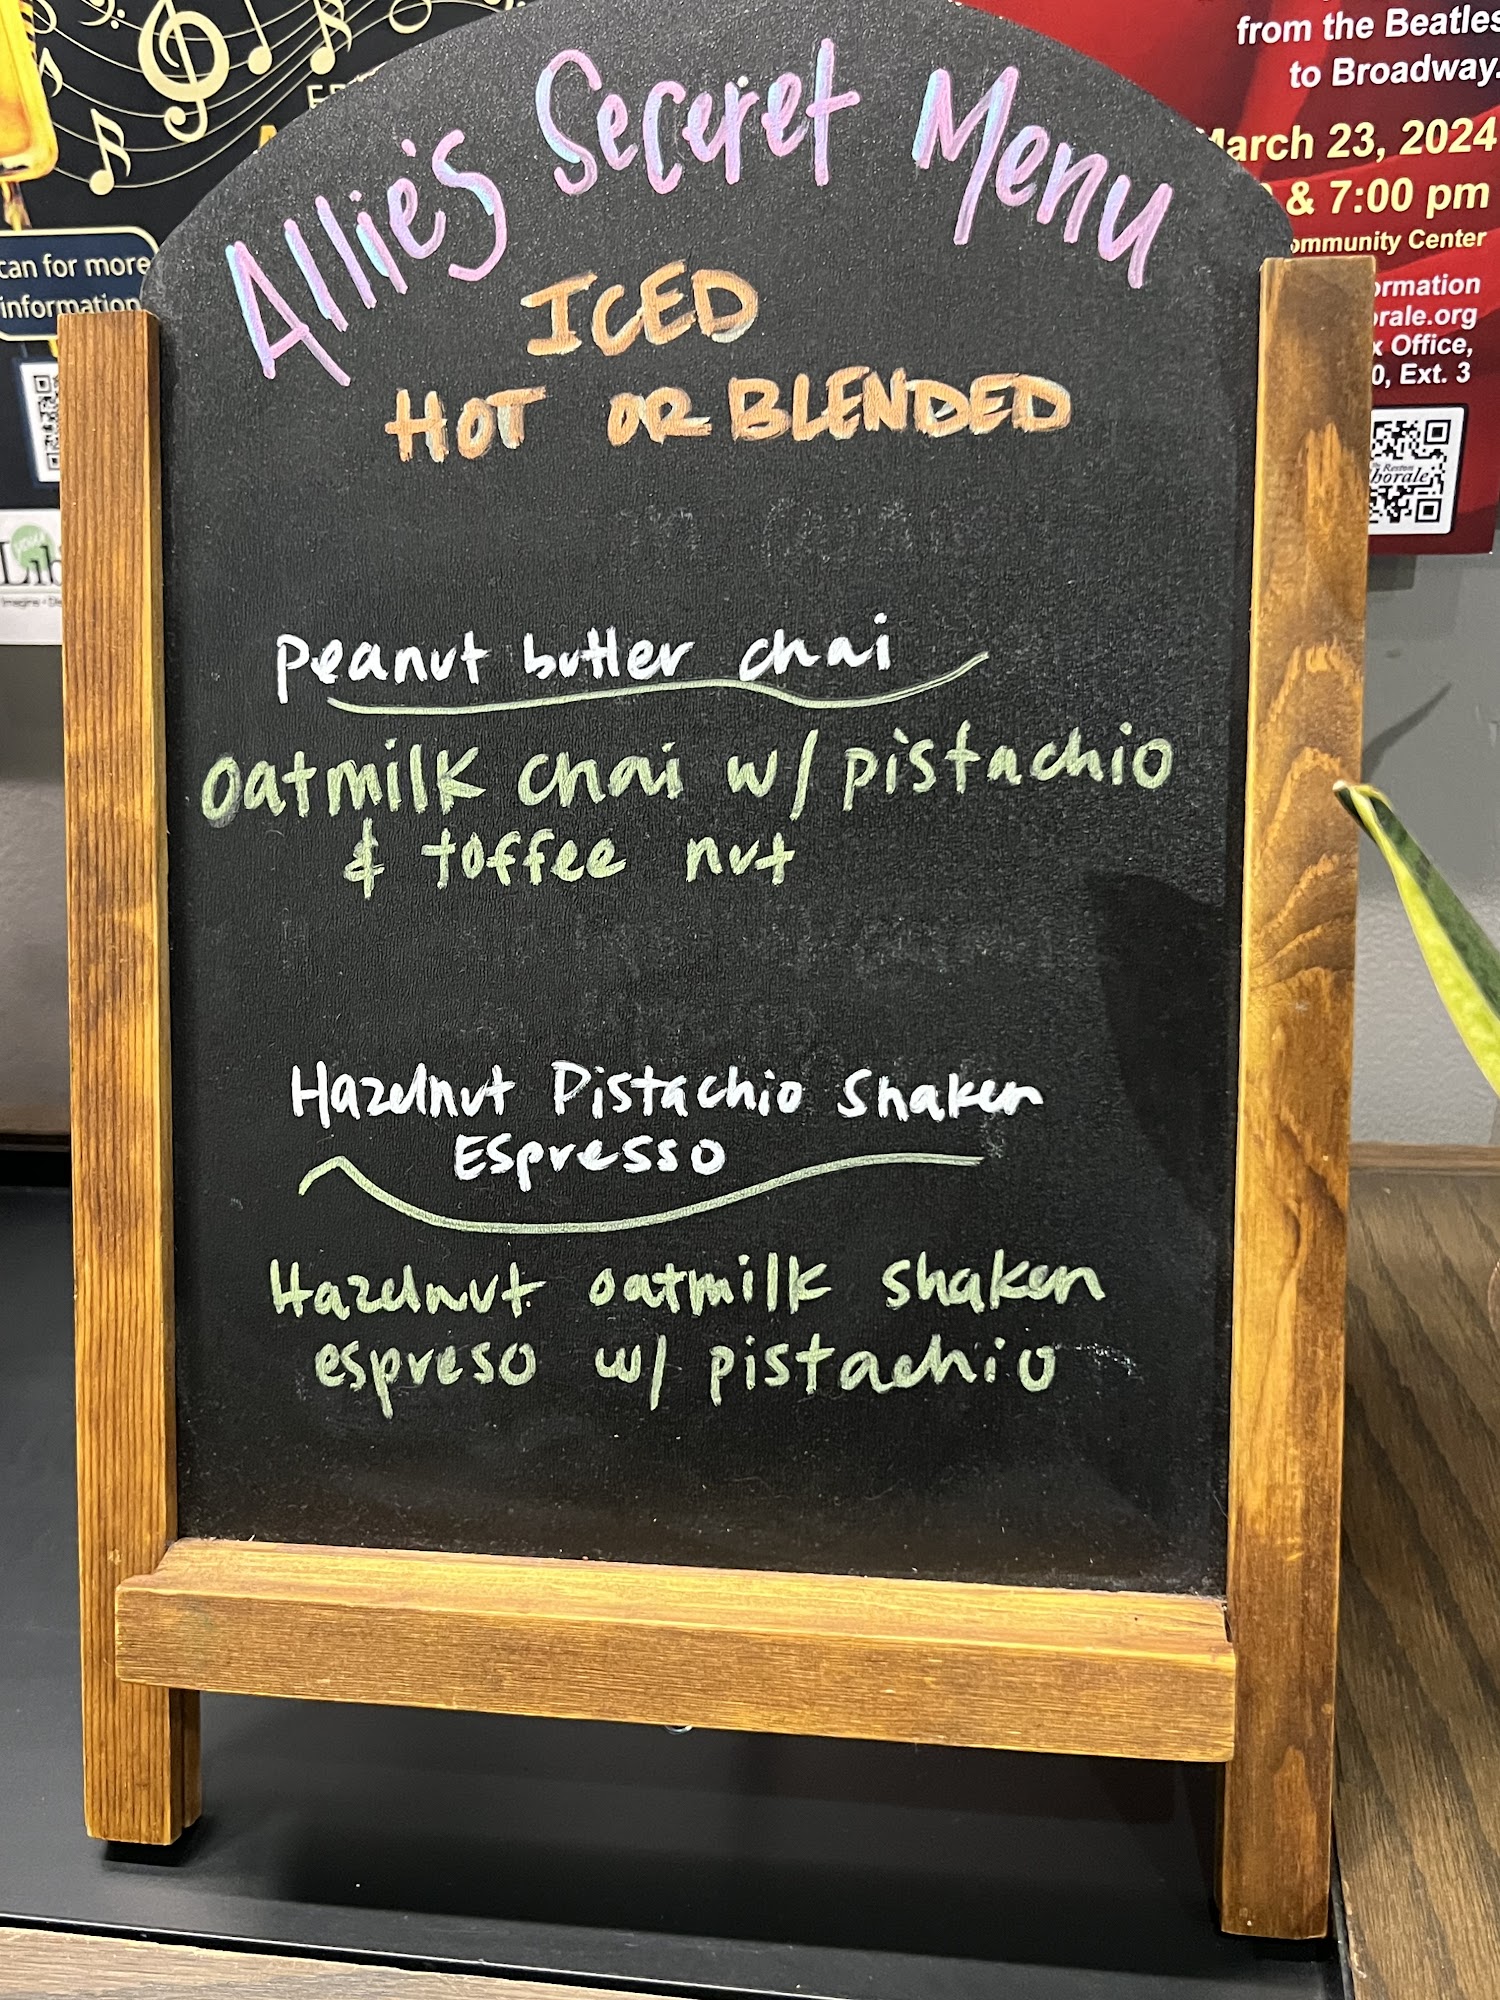 Allie's Seceret Menu
ICED
HOT OR BLENDED
peanut butter chai
oatmilk chai w/ pistachio
& toffee nut
Hazelnut Pistachio Shaken
Espresso
Hazelnut oatmilk shaken
espreso w/ pistachio
from the Beatles
to Broadway.
March 23, 2024
& 7:00 pm
ommunity Center
ormation
orale.org
x Office,
0, Ext. 3
The Reston
horale
can for more
information
your
Lib